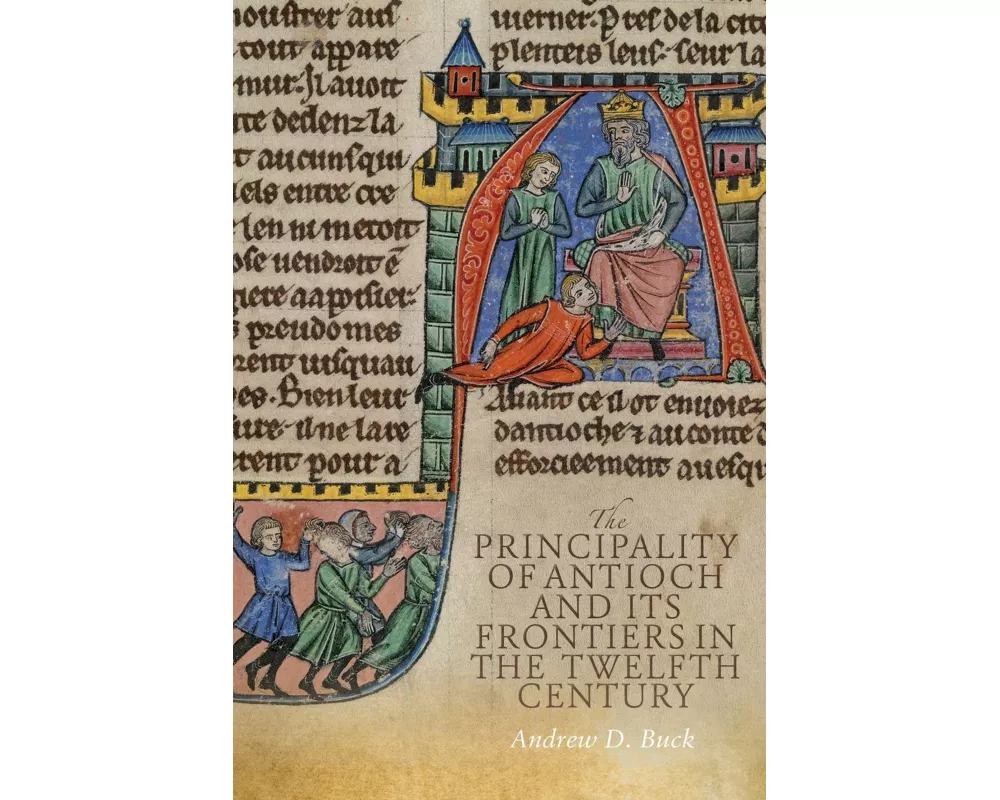 tout appare
mur. Il auoit
te dedenz la
t aucunsqui
els entre
len ni metoit
uendroit ē
preudomes
rent iusquau
es. Bien leur
ure. il ne
rent pour a
uerner. Pres de la cite
seur la
Auant ce il ot enuoiez
dantioche ⁊ au conte d
efforcieement auesqu
The
PRINCIPALITY
OF ANTIOCH
AND ITS
FRONTIERS IN
THE TWELFTH
CENTURY
Andrew D. Buck